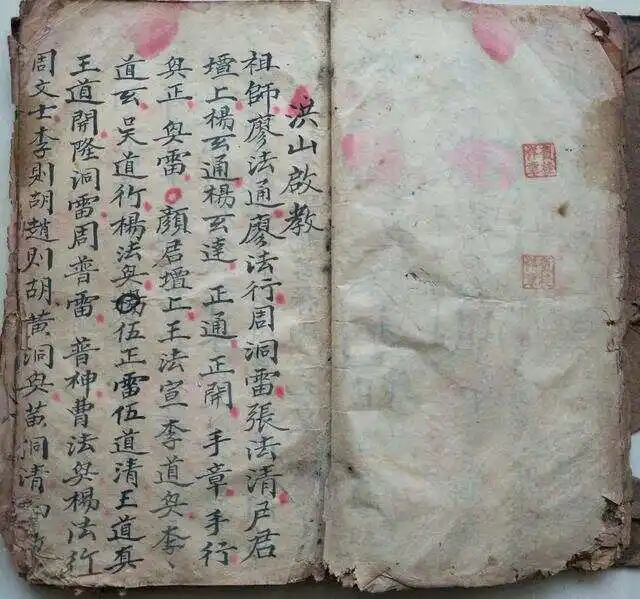 洪山啟教
祖師廖法通廖法行周洞雷張法清戶君
壇上楊玄通楊玄達 正通 正開 手章手行
興正 興雷 顏君壇上王法宣李道興李、
道玄吴道行楊法興伍正雷伍道清王道真
王道開隆洞雷周普雷 普神曹法興楊法行
周文士李則胡趙則胡黃洞興黃洞清